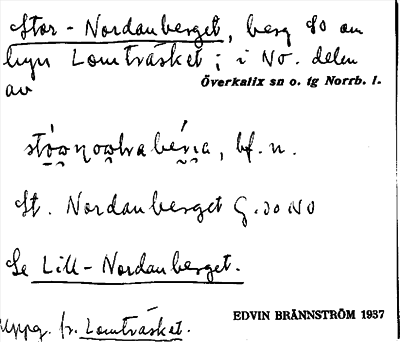 Stor-Nordanberget, berg SO om
byn Lomträsket; i NO. delen
av
Överkalix sn o. tg Norrb. l.
bf. n.
St. Nordanberget G. 30 NO
Se Lill-Nordanberget.
Uppg. fr. Lomträsket.
EDVIN BRÄNNSTRÖM 1937